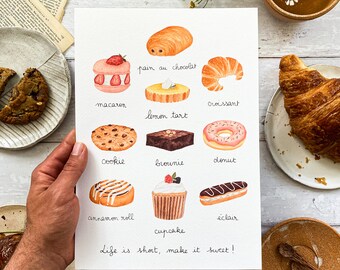 pain au chocolat
macaron
lemon tart
croissant
cookie
brownie
donut
cinnamon roll
cupcake
éclair
Life is short, make it sweet!